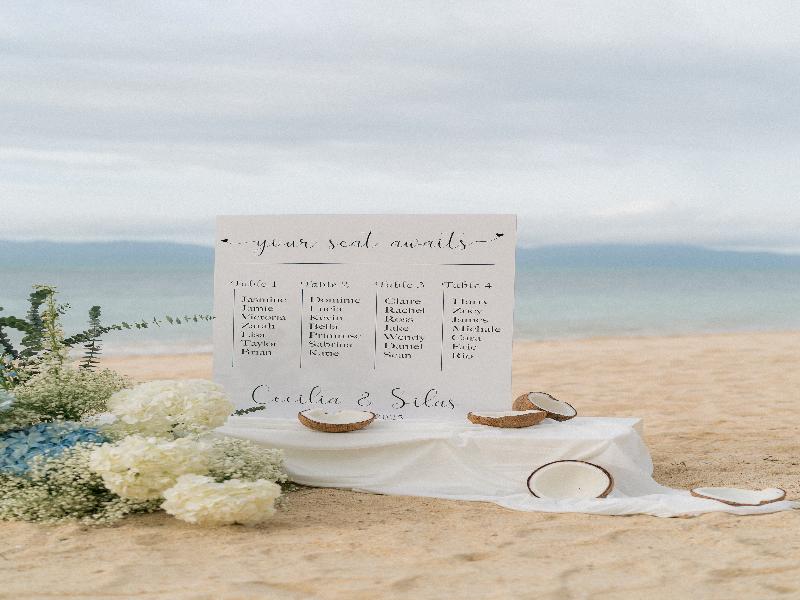 your seat awaits
Table 1
Jasmine
Jamie
Victoria
Zarah
Lisa
Taylor
Brian
Table 2
Dominic
Lucia
Kevin
Bella
Primrose
Sabrina
Kane
Table 3
Claire
Rachel
Ross
Jake
Wendy
Daniel
Sean
Table 4
Harry
Zoey
James
Michale
Cara
Eric
Rio
Cecilia & Silas